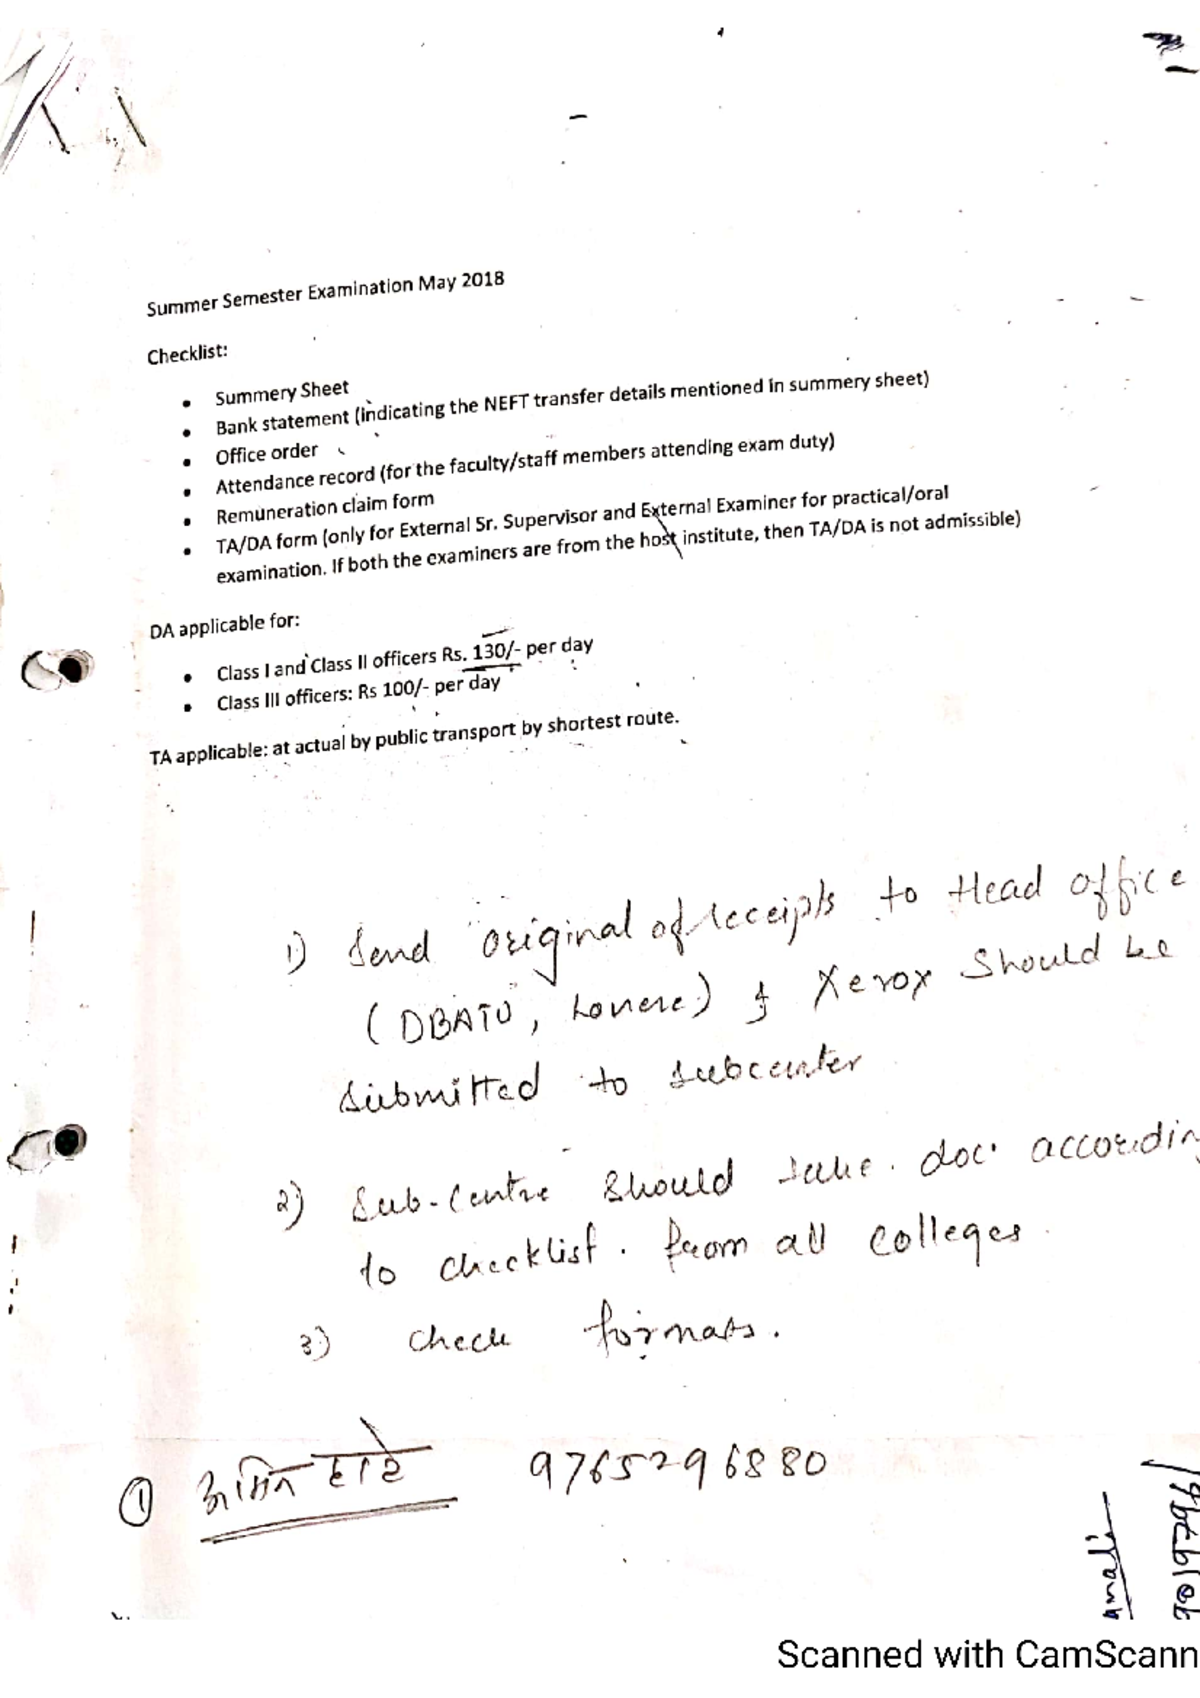 Summer Semester Examination May 2018
Checklist:
• Summery Sheet
• Bank statement (indicating the NEFT transfer details mentioned in summery sheet)
• Office order
• Attendance record (for the faculty/staff members attending exam duty)
• Remuneration claim form
• TA/DA form (only for External Sr. Supervisor and External Examiner for practical/oral
examination. If both the examiners are from the host institute, then TA/DA is not admissible)
DA applicable for:
• Class I and Class II officers Rs. 130/- per day
• Class III officers: Rs 100/- per day
TA applicable: at actual by public transport by shortest route.
1) Send original of receipts to Head office
(DBATU, Lonere) & Xerox should be
submitted to subcenter
2) Sub-Centre should take doc. according
to checklist. from all colleges.
3) Check formats.
① 9765296880
Scanned with CamScann